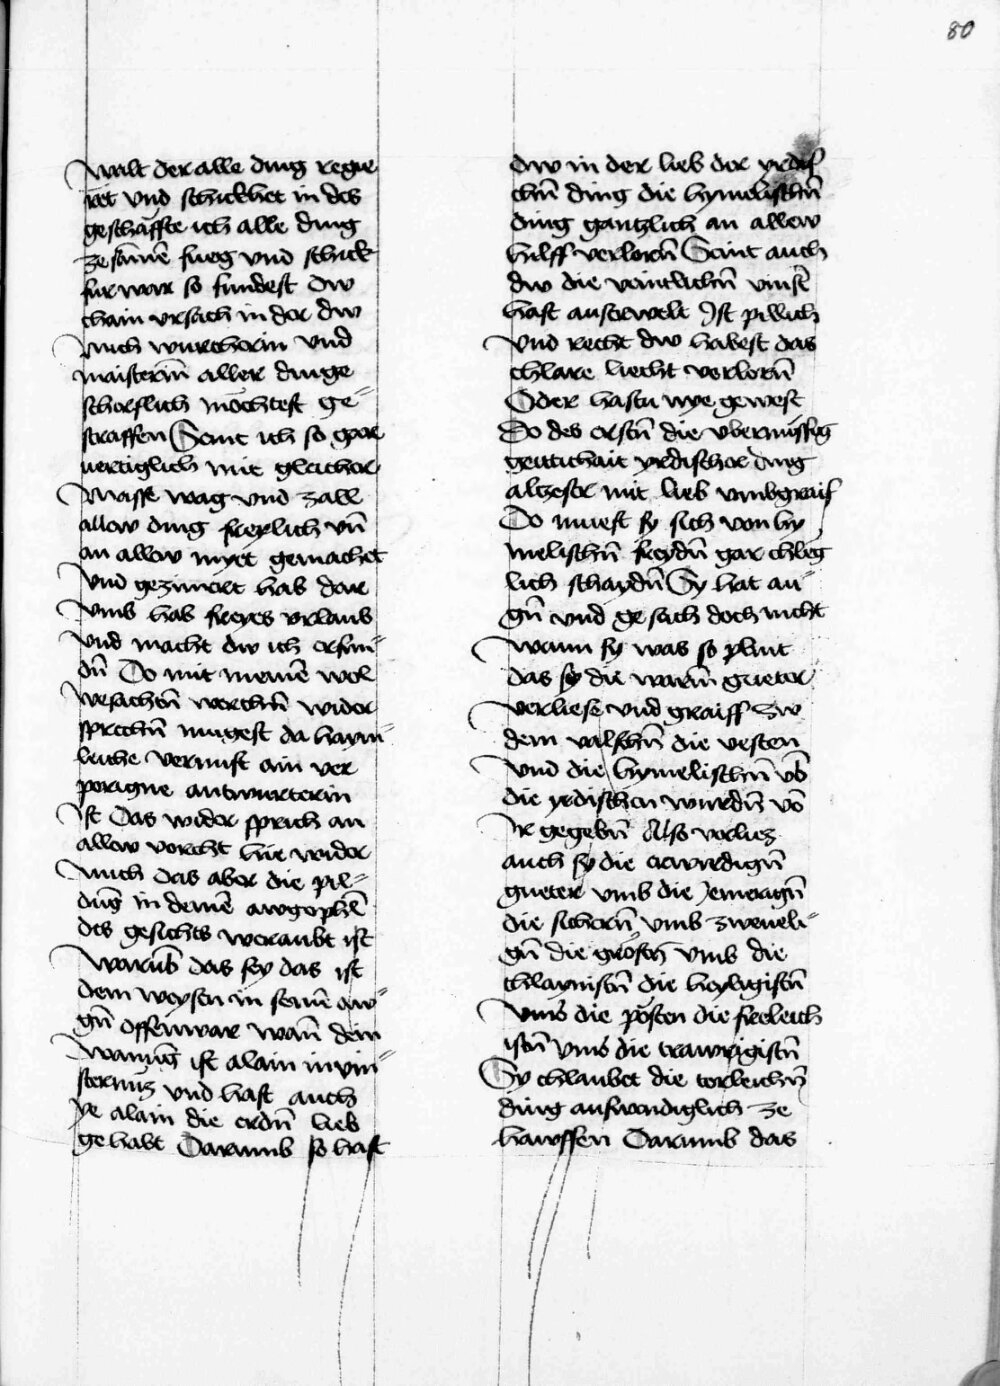 80
walt der alle ding regie
ret vnd schickhet in des
geschäffte ich alle ding
ze sāmē fueg vnd schick
fur war so fundest dw
chain vrsach in der dw
mich wurcherin vnd
maisterin̄ aller dinge
scherflich möchtest ge=
straffen Seint ich so gar
uertiglich mit gleicher
Masse wag vnd zall
allew ding freylich vn̄
an allew myet gemachet
vnd gezimert hab dar
vmb hab freyes vrlaub
vnd macht dw ich erfin=
dn̄ Do mit meinē wol
vesachtn̄ wercthn̄ wider
sprechn̄ mugest da haym=
leiche vernuft ain ver
porigne antwurterin
Ist Das wider sprich an
allew vorcht hie wider
mich das aber die pil=
dūg in deinē awgophēl
des gesichts weraubt ist
Warūb das sey das ist
dem weysen in seinē aw=
gn̄ offenwar wan̄ dein
wanūg ist alain in vin=
sternuz vnd hast auch
ye alain die erdn̄ lieb
gehabt Darumb so hast
dw in der lieb der yrdis
chn̄ ding die hymelischn̄
ding gantzlich an allew
hilff verlorn̄ Seint auch
dw die veintlichn̄ vinst̄
hast auserwelt Ist pillich
vnd recht dw habest das
chlare liecht verlorn̄
Oder hastu nye gewest
Do des erstn̄ die vbermässig
geitichait yrdischer ding
altzeser mit lieb vmbgraif
Do muest sy sich von hy
melischn̄ freydn̄ gar chleg
lich schaydn̄ Sy hat au=
gn̄ vnd gesach doch nicht
wann sy was so plint
das sy die warn̄ gueter
verliese vnd graiff zw
dem valschn̄ die vesten
vnd die hymelischn̄ vb̄
die yrdischen wurdn̄ vō
Ir gegebn̄ Also verliez
auch sy die erwirdign̄
gueter vmb die Jemerign̄
die sichern̄ vmb zweueli=
gn̄ die gröstn̄ vmb die
chlaynistn̄ die heyligistn̄
vmb die pösten die freleich
istn̄ vmb die trawrigistn̄
Sy chlaubet die torleichn̄
ding aufwendiglich ze
hawffen Darumb das